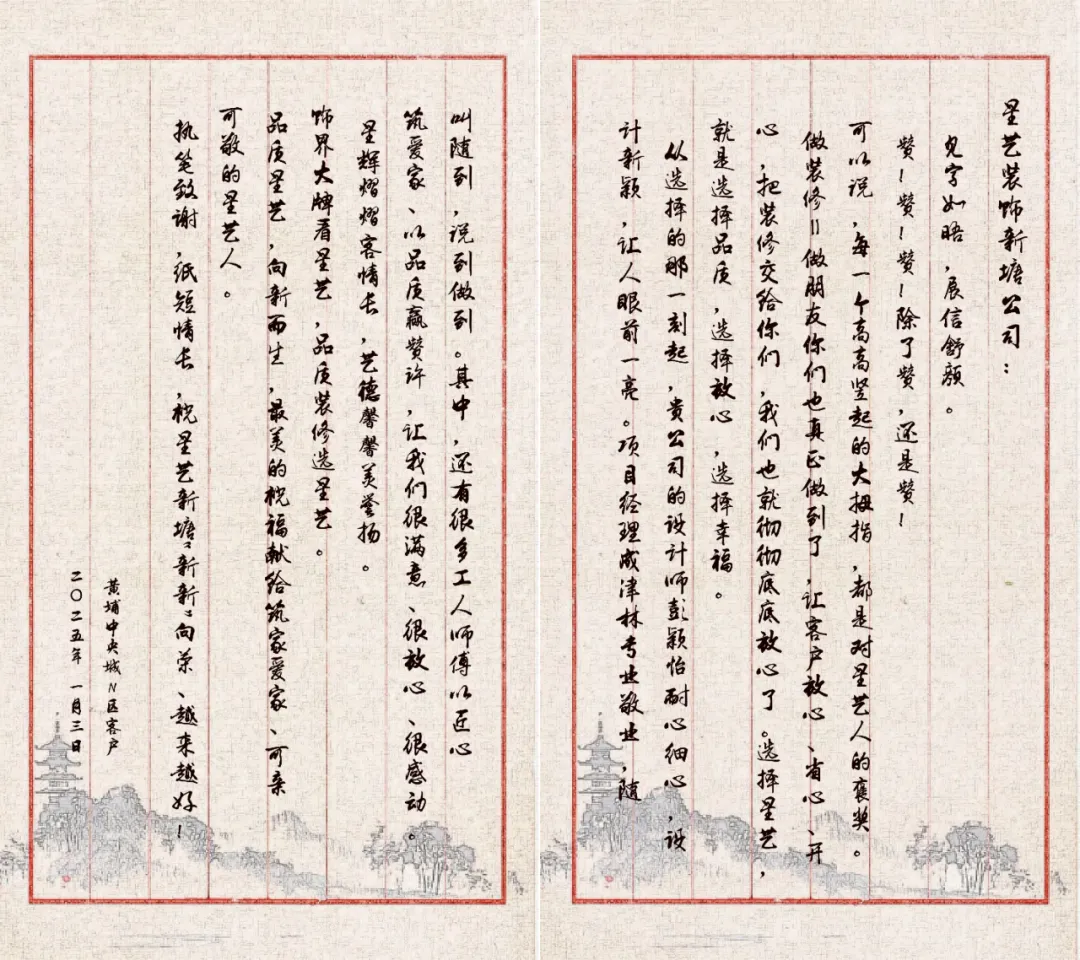 星艺装饰新塘公司：
见字如晤，展信舒颜。
赞！赞！赞！除了赞，还是赞！
可以说，每一个高高竖起的大拇指，都是对星艺人的褒奖。
做装修＝做朋友你们也真正做到了，让客户放心、省心、开
心，把装修交给你们，我们也就彻彻底底放心了。选择星艺，
就是选择品质，选择放心，选择幸福。
从选择的那一刻起，贵公司的设计师彭颖怡耐心细心，设
计新颖，让人眼前一亮。项目经理成津林专业敬业，随
叫随到，说到做到。其中，还有很多工人师傅以匠心
筑爱家、以品质赢赞许，让我们很满意、很放心、很感动。
星辉熠熠客情长，艺德馨馨美誉扬。
饰界大牌看星艺，品质装修选星艺。
品质星艺，向新而生，最美的祝福献给筑家爱家、可亲
可敬的星艺人。
执笔致谢，纸短情长，祝星艺新塘“新新”向荣、越来越好！
黄埔中央城N区客户
二〇二五年一月三日